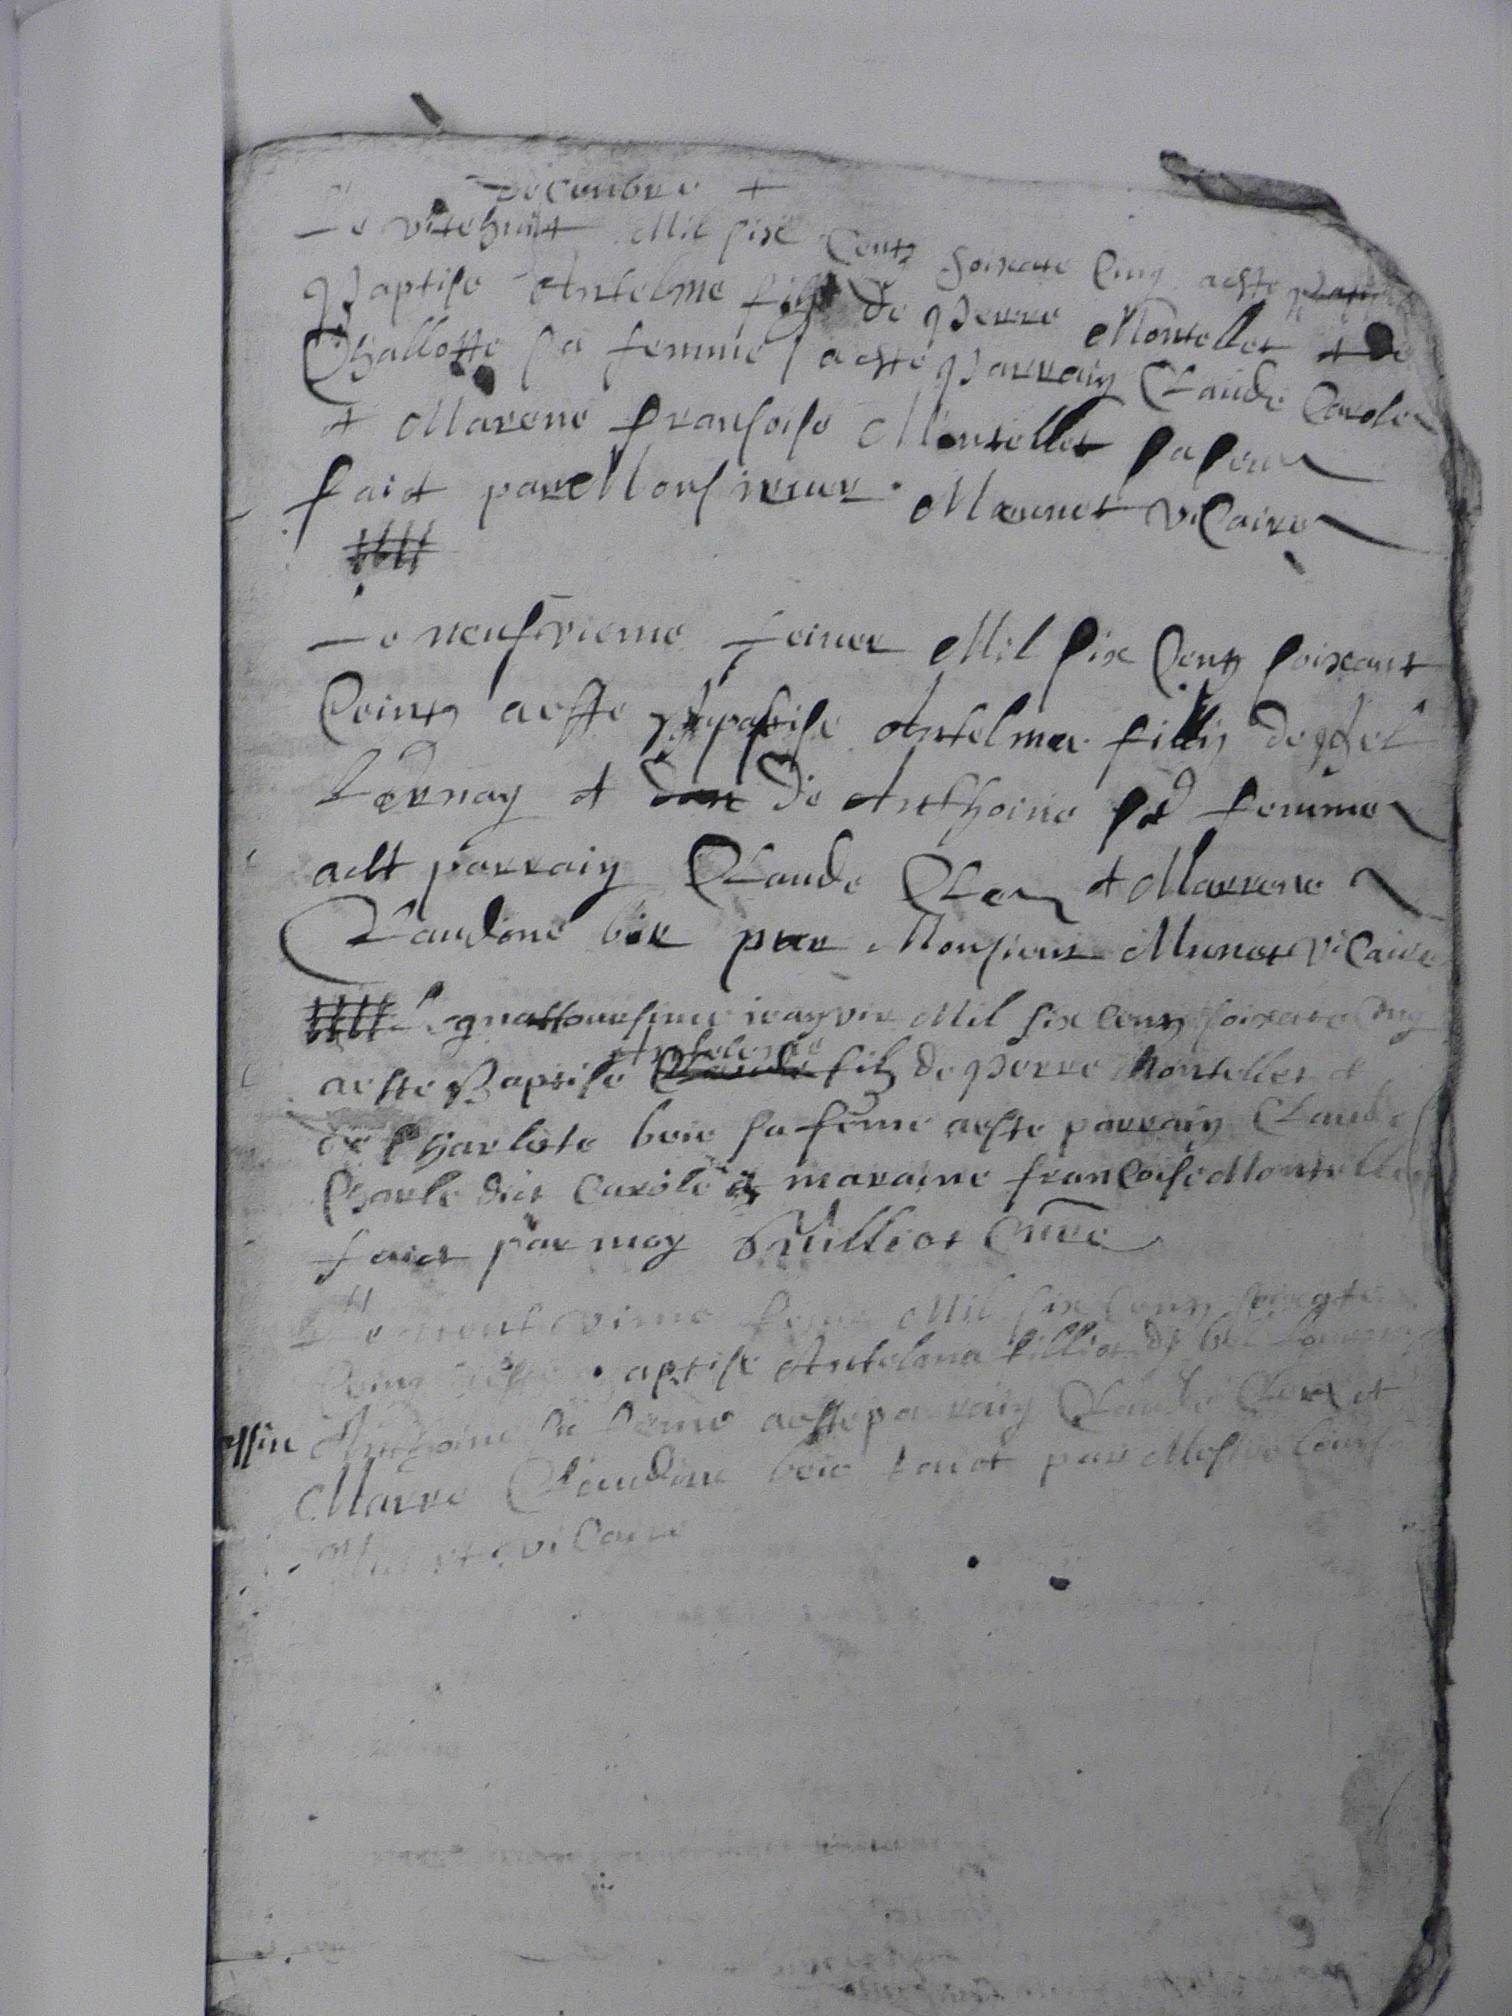 Decembre +
Le vītehuit Mil sixe Centz soixāte Cinq aeste
Baptise Antelme filz de Pierre Montellet et de
Challotte sa femme aeste Parrain Claude Carole
et Marene Fransoise Montellet sa seur
faict par Monsieur Meunet viCaire
Le neufvieme feiver Mil six Centz soixant
Ceintz aeste Bapatise Antelma filly de
Lournay et de Anthoine sa femme
aest parrain Claude Cler et Marrene
Claudine bie par Monsieur Munet viCaire
Le quattoursime ieanvie Mil six Centz soixāte Cinq
Antelme
aeste Baptise Claude filz de Pierre Montellet et
de Charlote beie sa fēme aeste parrain Claude
Charle dict Carole et maraine franCoise Montelle
faict par moy Guilliot Cure
Le neufvime Mil six Centz soixāte
Ceinz aeste Baptise Antelma fillie de
Anthoine sa feme aeste parrain Claude Cler et
Marre Claudine beie faict par Messire
Munet viCaire